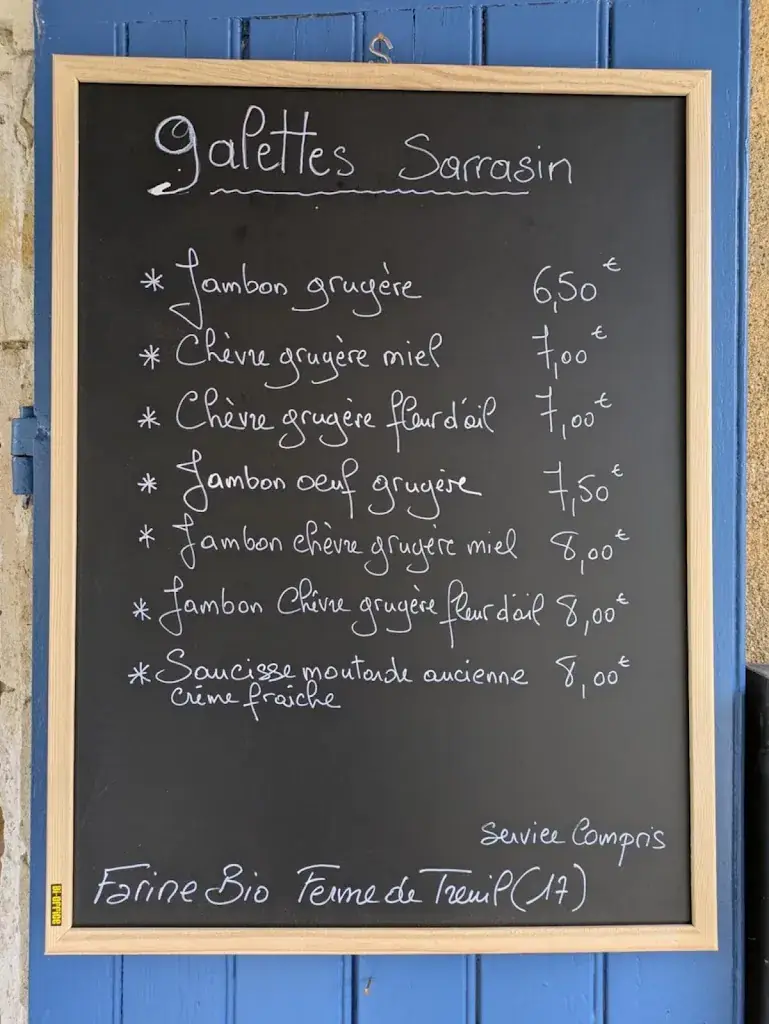 galettes Sarrasin
* Jambon gruyère 6,50€
* Chèvre gruyère miel 7,00€
* Chèvre gruyère fleur d'ail 7,00€
* Jambon oeuf gruyère 7,50€
* Jambon chèvre gruyère miel 8,00€
* Jambon Chèvre gruyère fleur d'ail 8,00€
* Saucisse moutarde ancienne 8,00€
crème fraîche
Service Compris
Farine Bio Ferme de Treuil (17)
BI-OFFICE